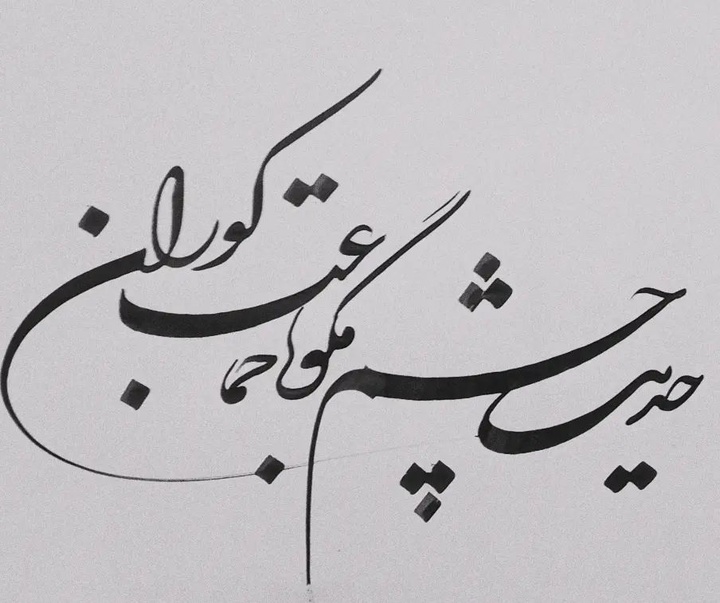 حدیث چشم مگو با جماعت کوران